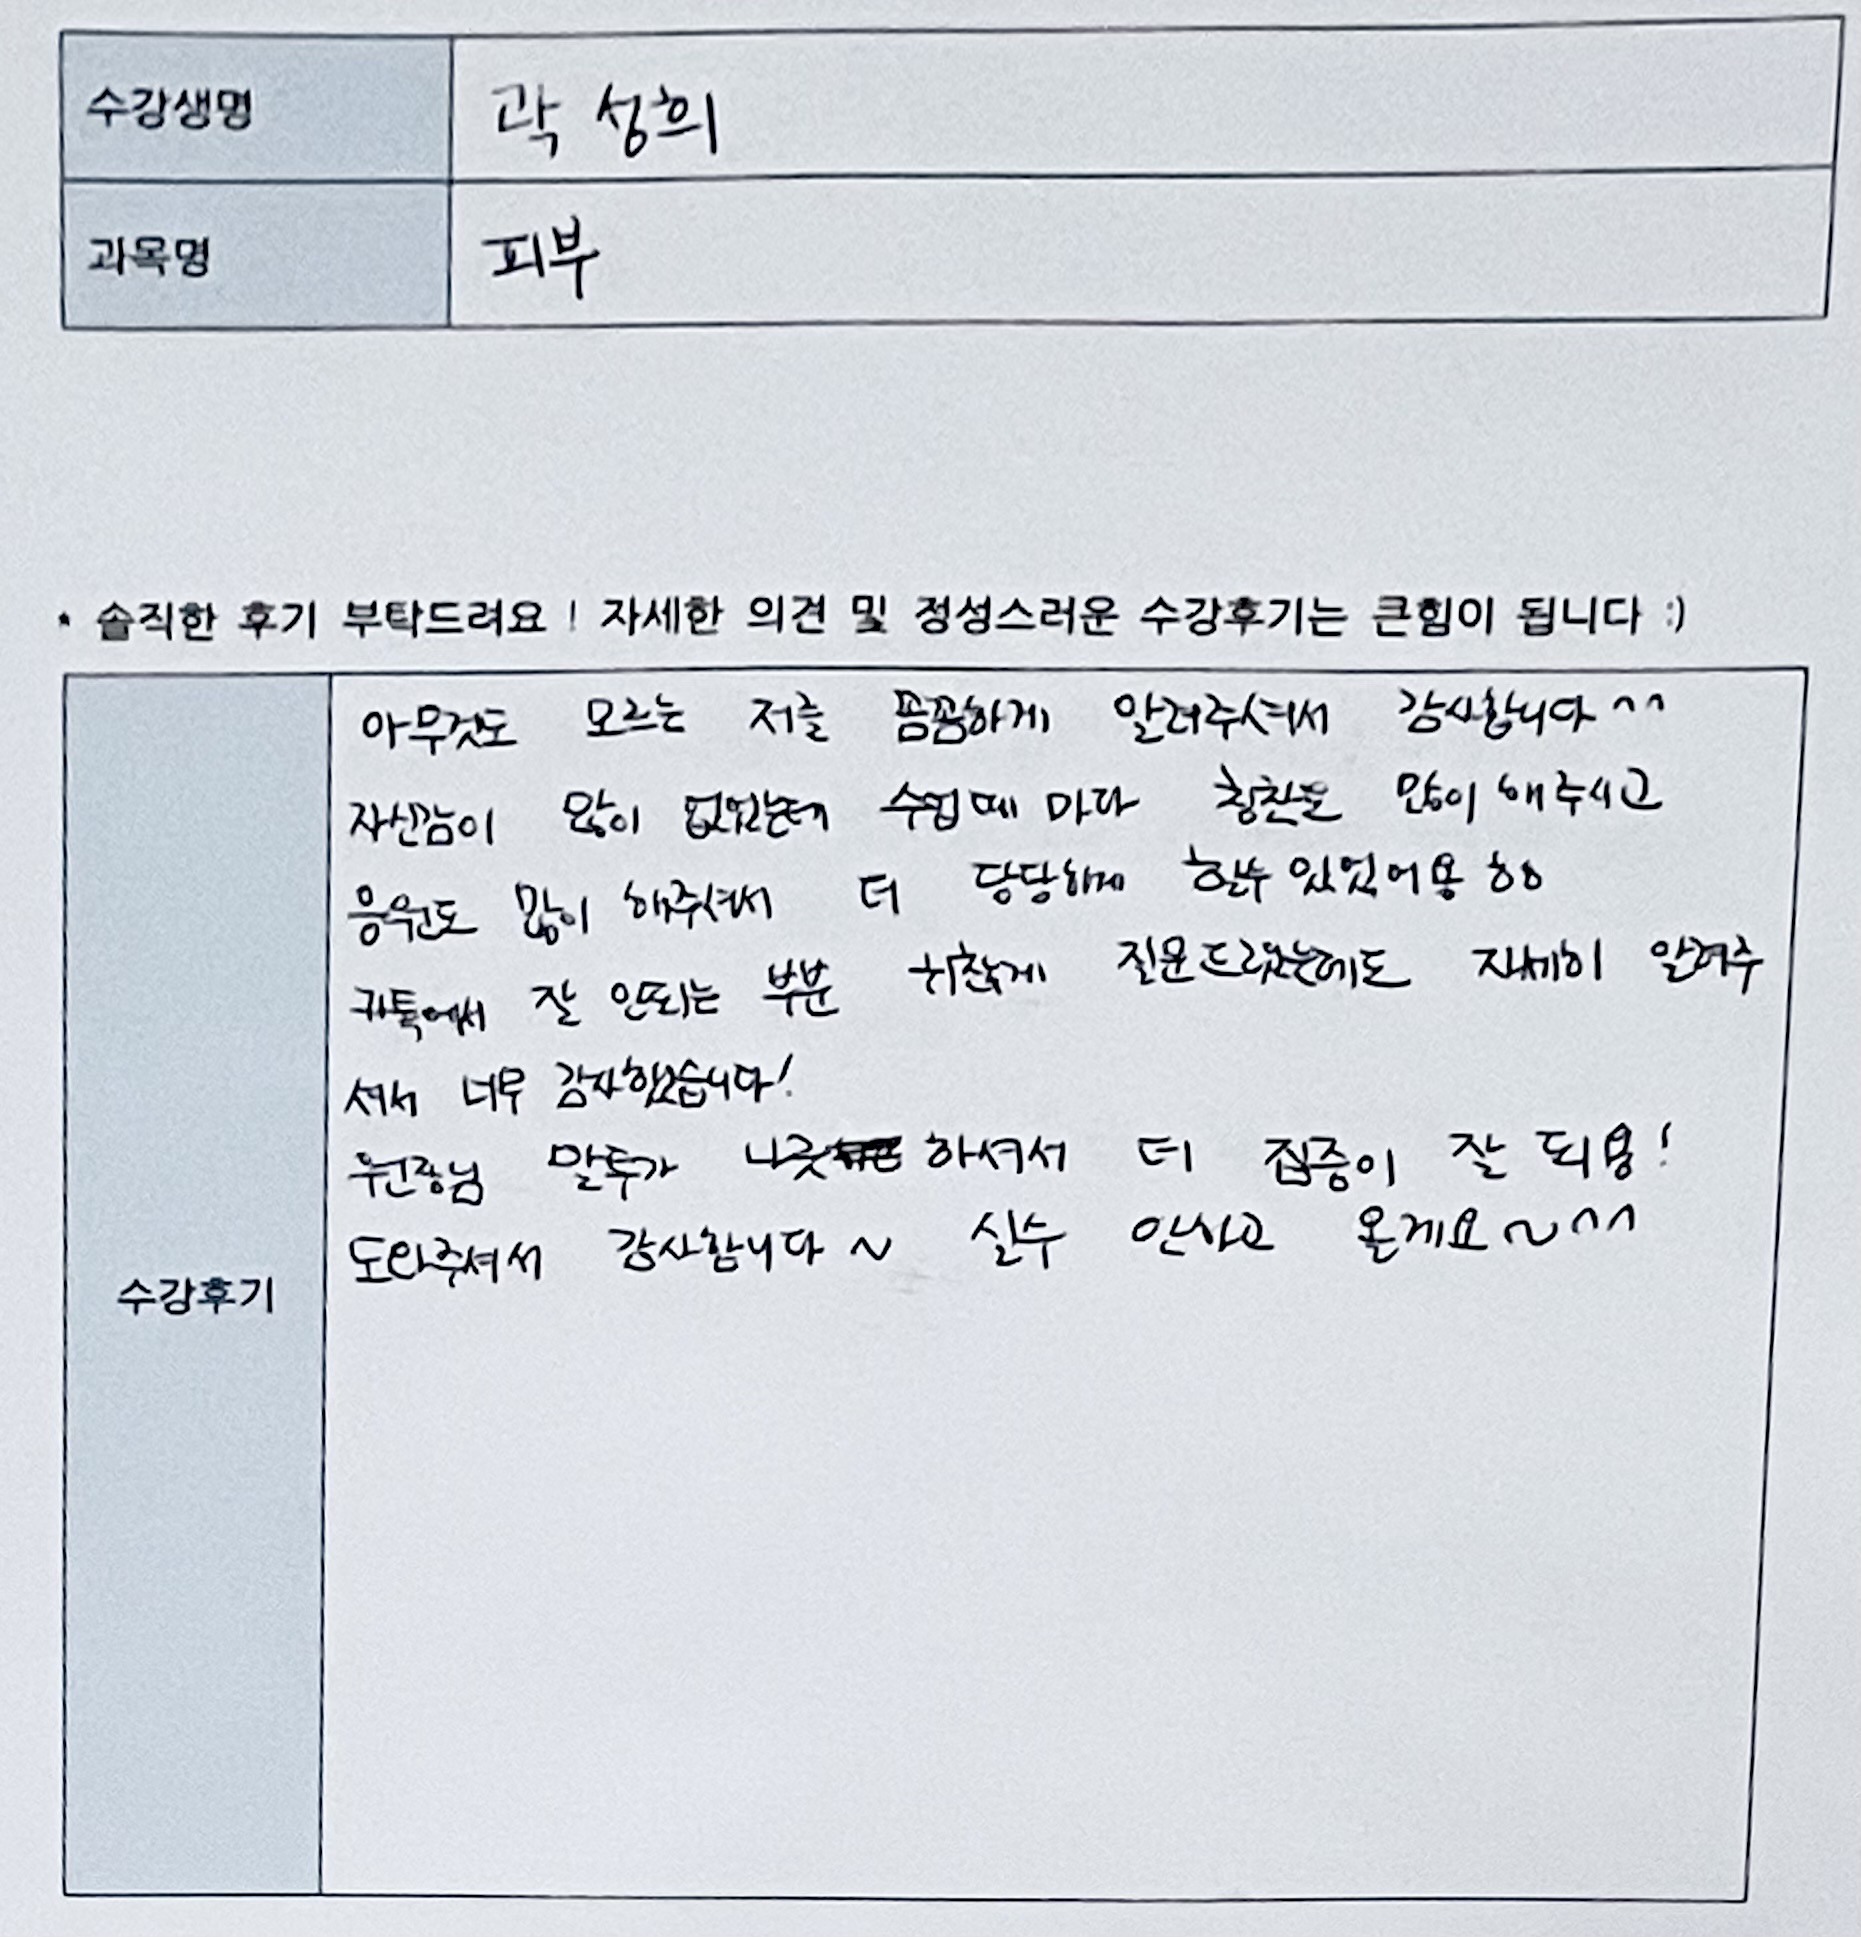 수강생명 곽성희
과목명 피부
* 솔직한 후기 부탁드려요 ! 자세한 의견 및 정성스러운 수강후기는 큰힘이 됩니다 :)
수강후기
아무것도 모르는 저를 꼼꼼하게 알려주셔서 감사합니다 ^^
자신감이 많이 없었는데 수업때 마다 칭찬을 많이 해주시고
응원도 많이 해주셔서 더 당당하게 할수 있었어용 ㅎㅎ
카톡에서 잘 안되는 부분 귀찮게 질문드렸는데도 자세히 알려주
셔서 너무 감사했습니다!
원장님 말투가 나긋 하셔서 더 집중이 잘 되용!
도와주셔서 감사합니다~ 실수 안하고 올게요~^^